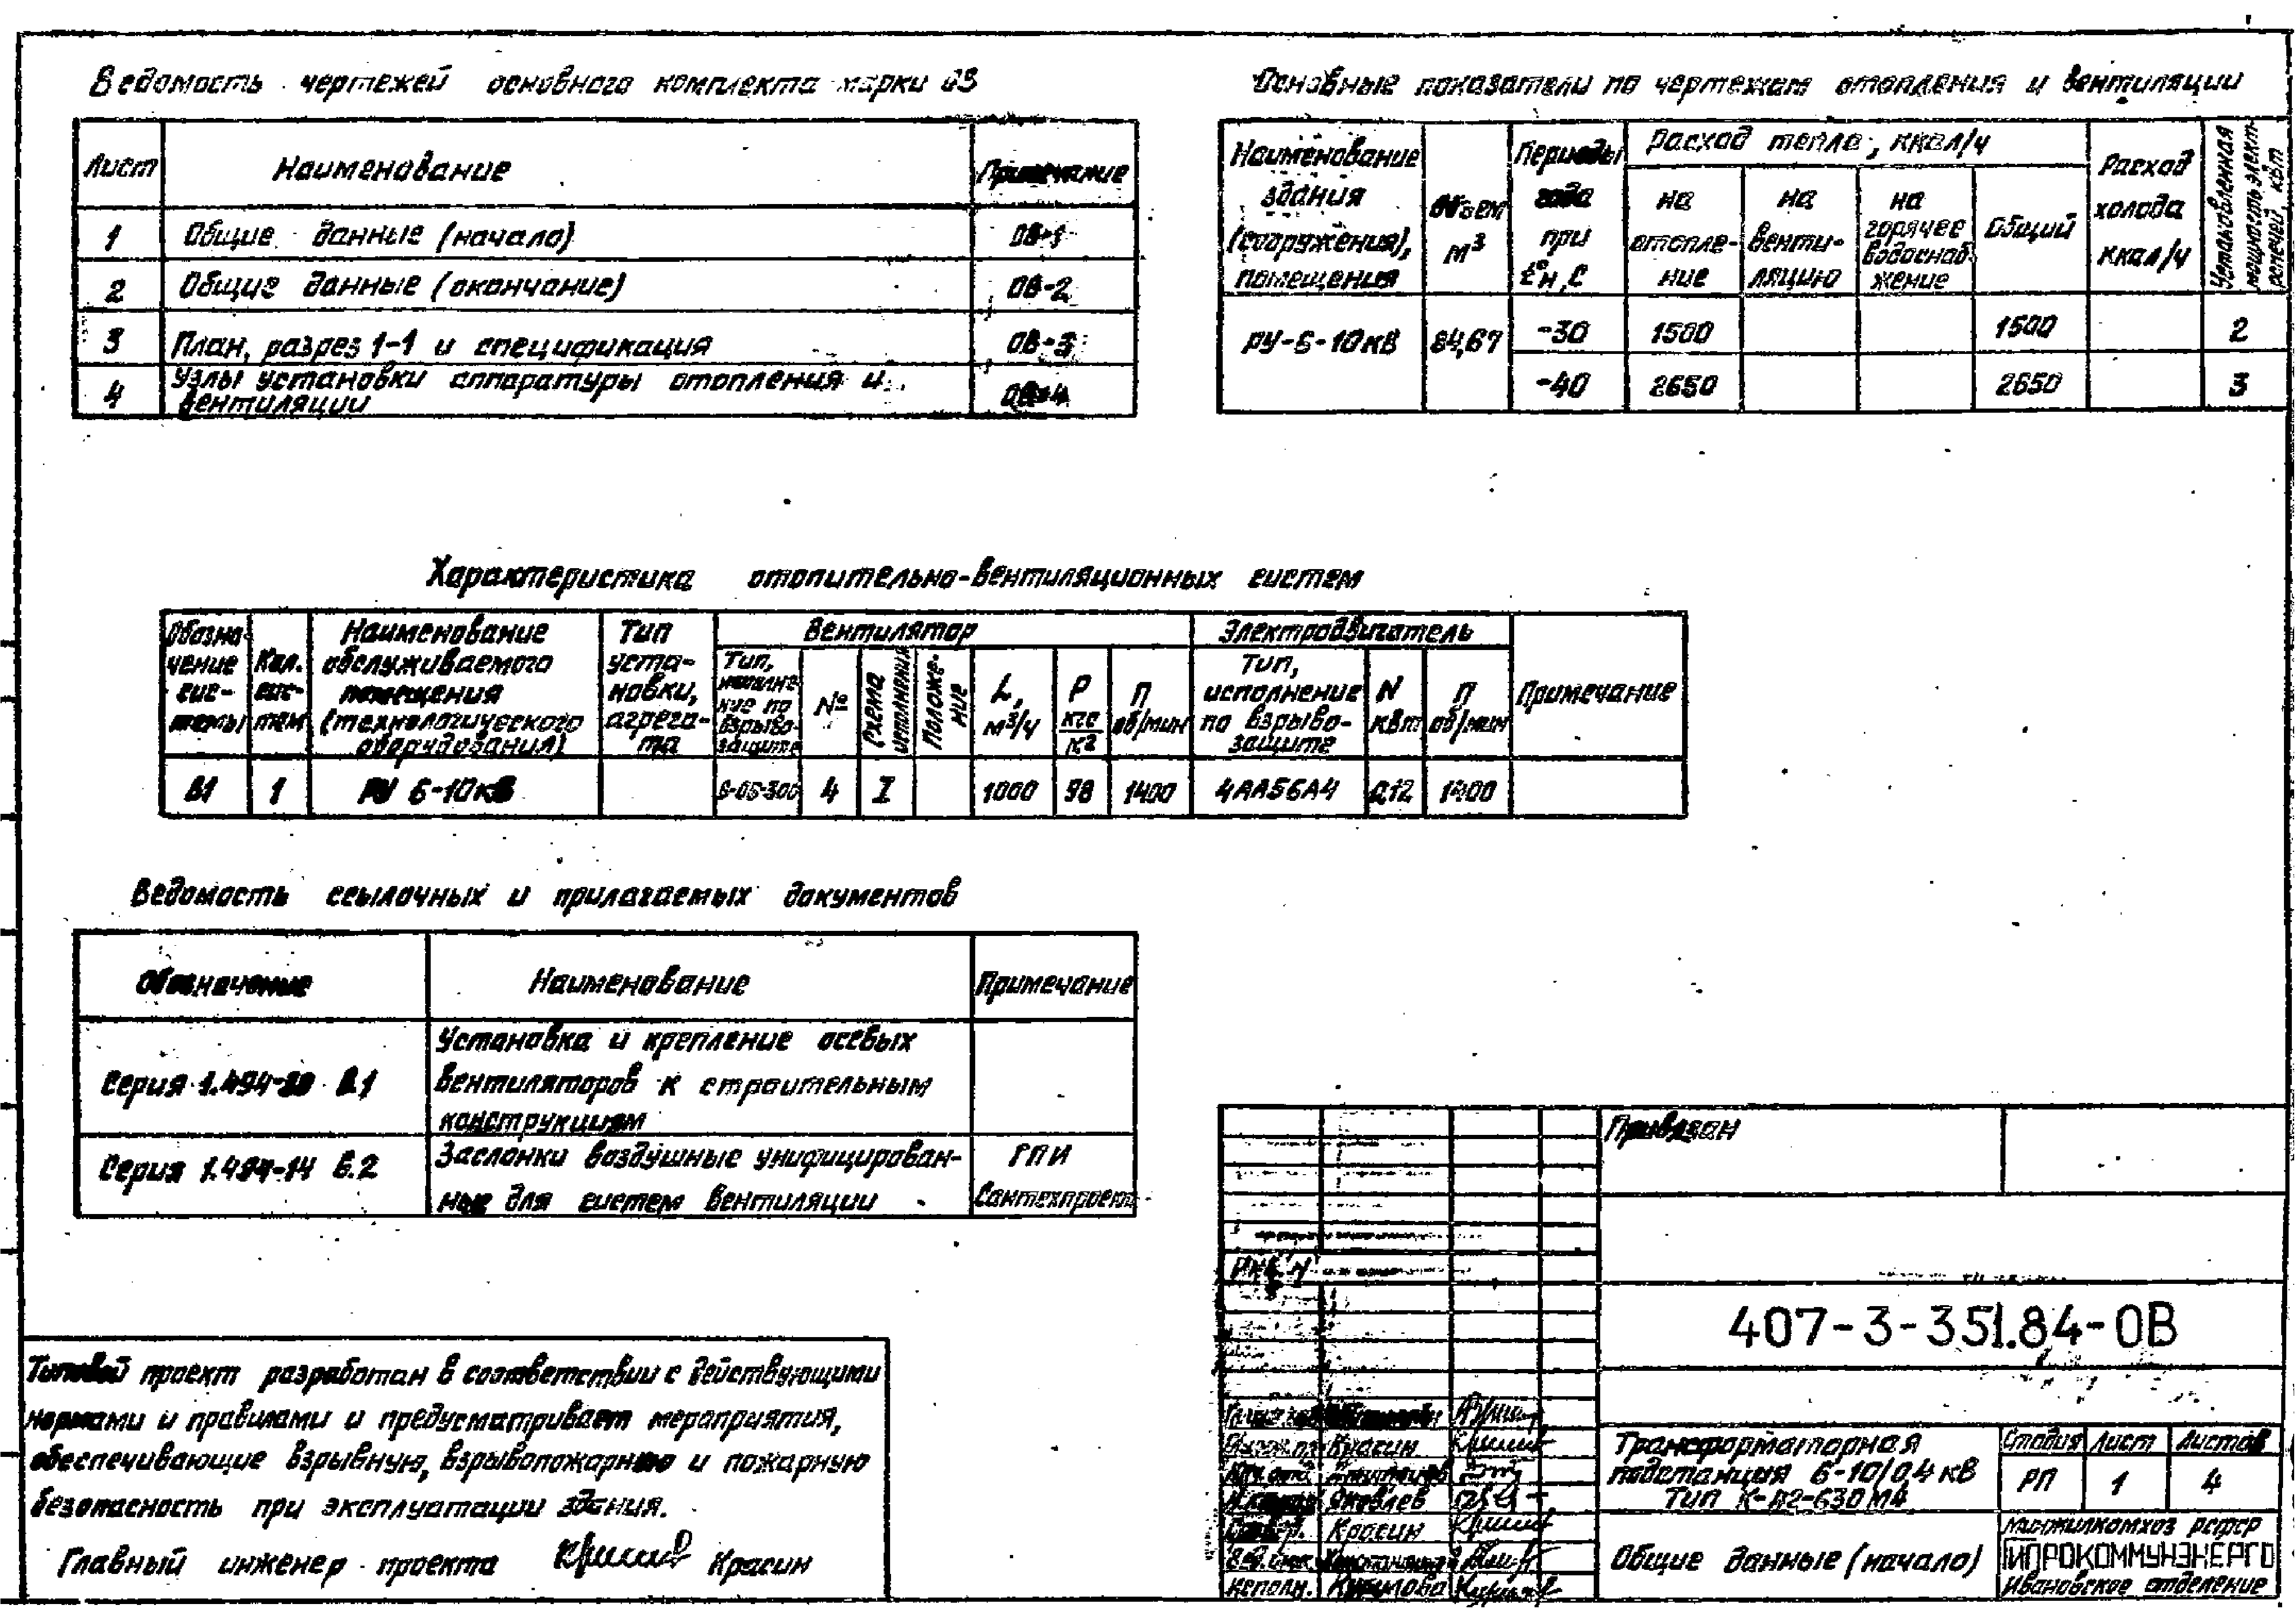 Ведомость чертежей основного комплекта марки ОВ
Лист Наименование Примечание
1 Общие данные (начало) ОВ-1
2 Общие данные (окончание) ОВ-2
3 План, разрез 1-1 и спецификация ОВ-3
4 Узлы установки аппаратуры отопления и
вентиляции ОВ-4
Основные показатели по чертежам отопления и вентиляции
Наименование
здания
(сооружения),
помещения
Объем
м³
Периоды
года
при
t°н,С
Расход тепла, ккал/ч
на
отопле-
ние
на
венти-
ляцию
на
горячее
водоснаб
жение
Общий
Расход
холода
ккал/ч
Установленная
мощность элект-
ропечей, кВт
РУ-6-10кВ 84,67 -30 1500 1500 2
-40 2650 2650 3
Характеристика отопительно-вентиляционных систем
Обозна-
чение
сис-
темы
Кол.
сис-
тем
Наименование
обслуживаемого
помещения
(технологического
оборудования)
Тип
уста-
новки,
агрега-
та
Вентилятор
Тип,
исполне-
ние по
взрыво-
защите
№
Схема
исполнения
Положе-
ние
L,
м³/ч
Р
кгс/м²
п
об/мин
Электродвигатель
Тип,
исполнение
по взрыво-
защите
N
кВт
п
об/мин
Примечание
В1 1 РУ 6-10кВ В-06-300 4 I 1000 98 1400 4АА56А4 0,12 1400
Ведомость ссылочных и прилагаемых документов
Обозначение Наименование Примечание
Установка и крепление осевых
Серия 1.494-30 В.1 вентиляторов к строительным
конструкциям
Серия 1.494-14 В.2 Заслонки воздушные унифицирован- ГПИ
ные для систем вентиляции Сантехпроект
Типовой проект разработан в соответствии с действующими
нормами и правилами и предусматривает мероприятия,
обеспечивающие взрывную, взрывопожарную и пожарную
безопасность при эксплуатации здания.
Главный инженер проекта Красин
Привязан
Инв. N
407-3-351.84-ОВ
Красин
Яковлев
Красин
Исполн.
Трансформаторная
подстанция 6-10/0,4 кВ
Тип К-42-630 М4
Стадия Лист Листов
РП 1 4
Общие данные (начало)
Минжилкомхоз РСФСР
ГИПРОКОММУНЭНЕРГО
Ивановское отделение